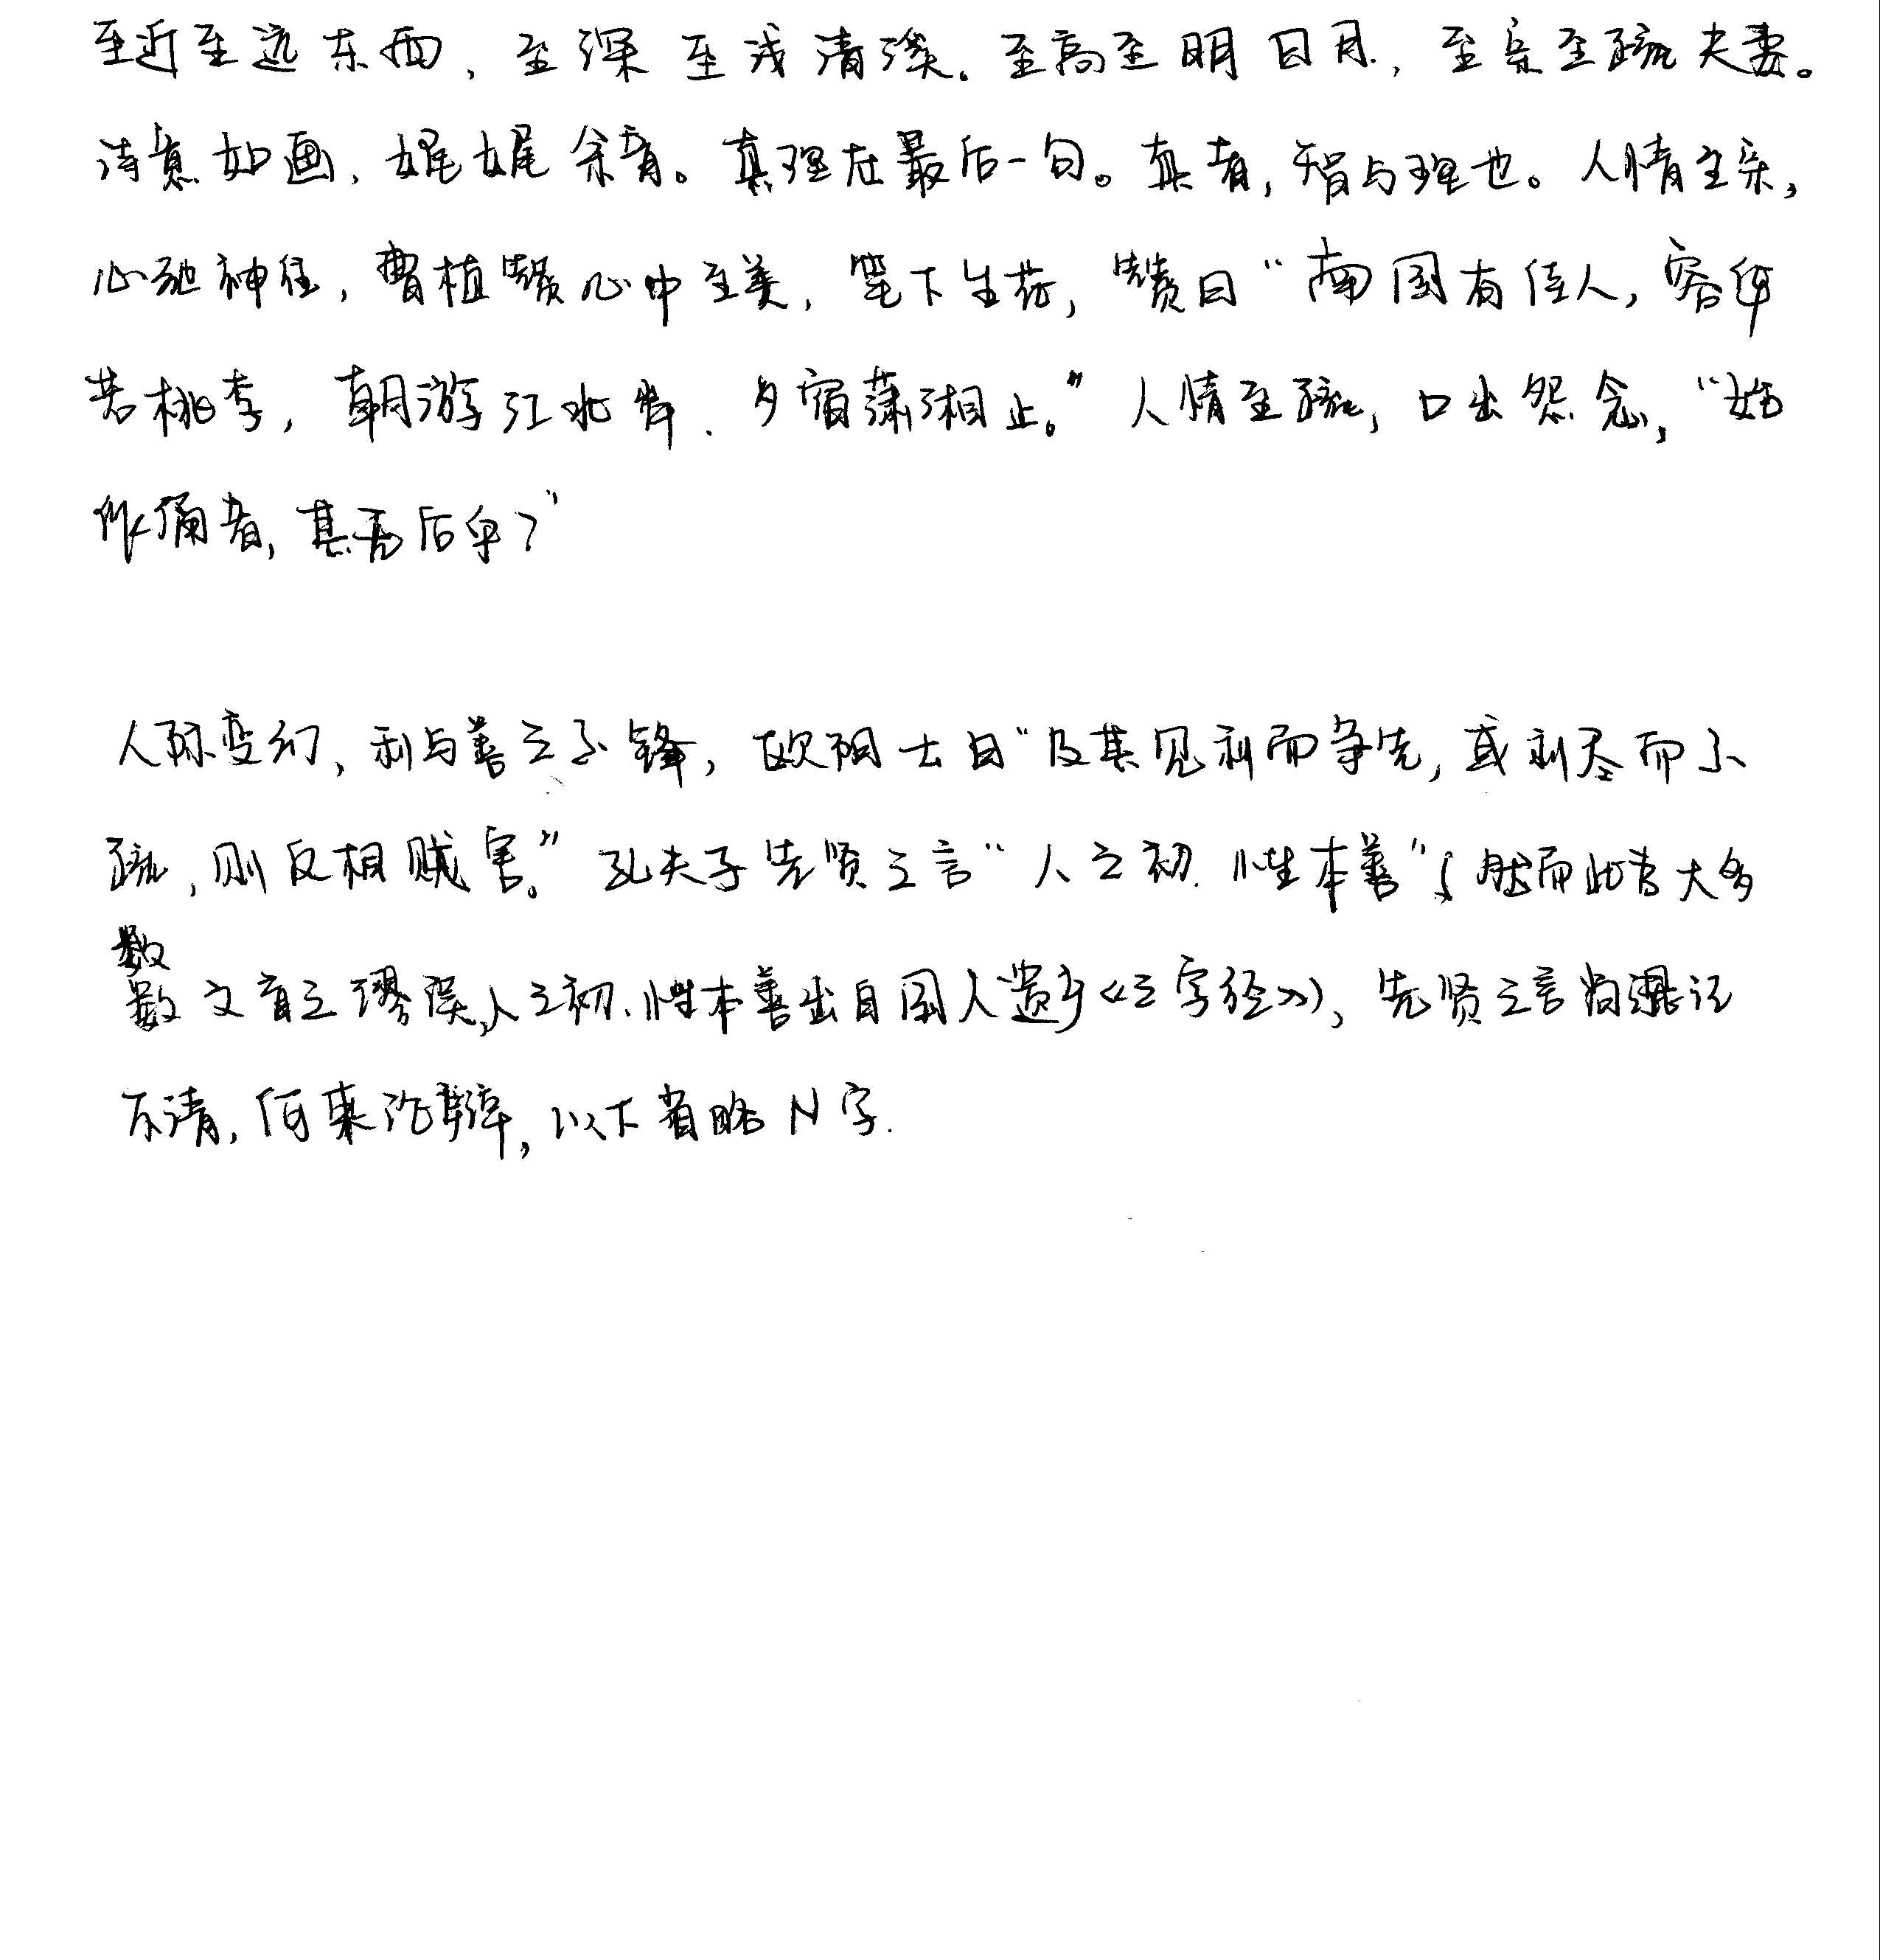 至近至远东西，至深至浅清溪。至高至明日月，至亲至疏夫妻。
诗意如画，娓娓余音。真理在最后一句。真者，智与理也。人情至亲，
心驰神往，曹植赞心中至美，笔下生花，赞曰“南国有佳人，容华
若桃李，朝游江北岸，夕宿潇湘止。”人情至疏，口出怨念，“始
作俑者，其无后乎？”
人际变幻，利与善之交锋，欧阳士曰“及其见利而争先，或利尽而交
疏，则反相贼害。”孔夫子先贤之言“人之初，性本善”；然而此者大多
数
数文盲之谬误，人之初，性本善出自国人遗考《三字经》，先贤之言尚混记
不清，何来论辩，以下省略N字.